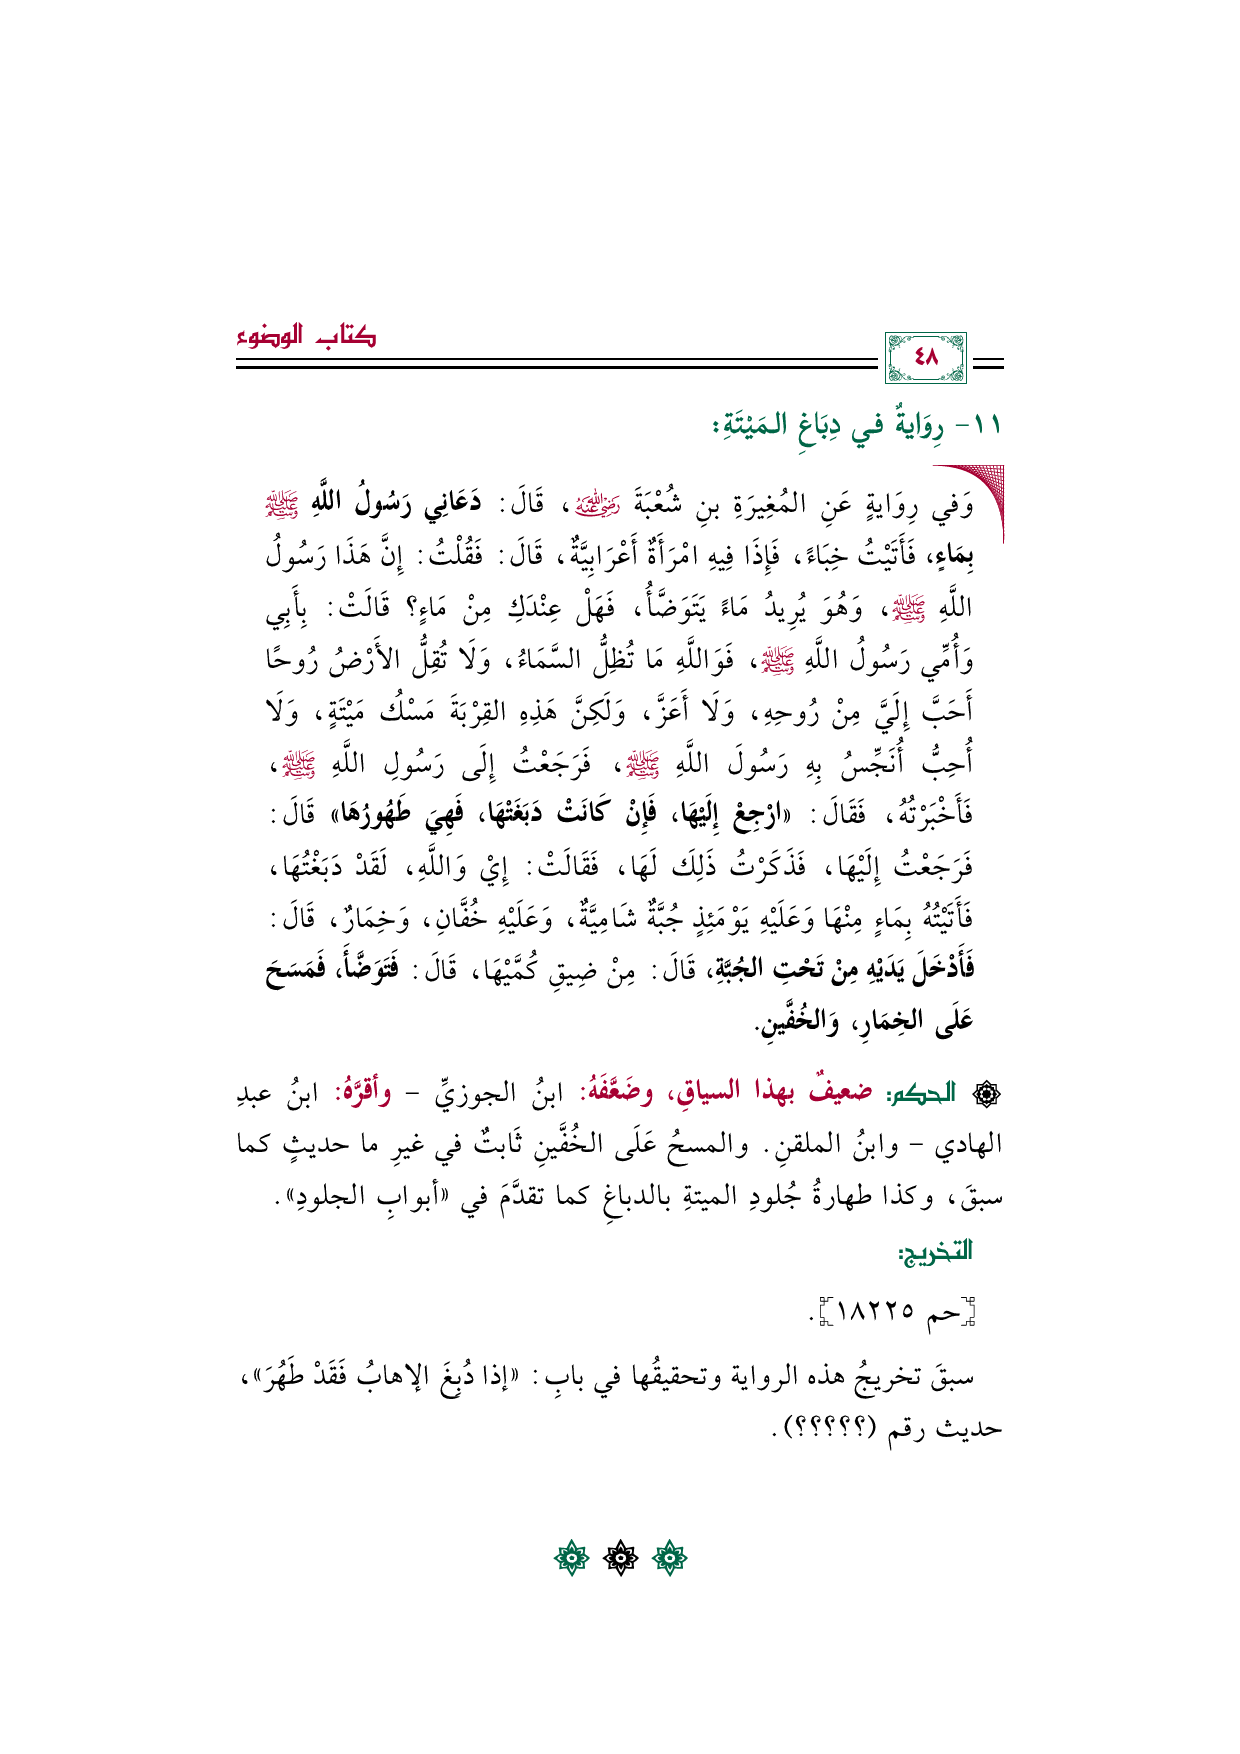 كتاب الوضوء
٤٨
١١- رِوَايةٌ في دِبَاغِ المَيْتَةِ:
وَفي رِوَايةٍ عَنِ المُغِيرَةِ بنِ شُعْبَةَ رضي الله عنه، قَالَ: دَعَانِي رَسُولُ اللَّهِ ﷺ
بِمَاءٍ، فَأَتَيْتُ خِبَاءً، فَإِذَا فِيهِ امْرَأَةٌ أَعْرَابِيَّةٌ، قَالَ: فَقُلْتُ: إِنَّ هَذَا رَسُولُ
اللَّهِ ﷺ، وَهُوَ يُرِيدُ مَاءً يَتَوَضَّأُ، فَهَلْ عِنْدَكِ مِنْ مَاءٍ؟ قَالَتْ: بِأَبِي
وَأُمِّي رَسُولُ اللَّهِ ﷺ، فَوَاللَّهِ مَا تُظِلُّ السَّمَاءُ، وَلَا تُقِلُّ الأَرْضُ رُوحًا
أَحَبَّ إِلَيَّ مِنْ رُوحِهِ، وَلَا أَعَزَّ، وَلَكِنَّ هَذِهِ القِرْبَةَ مَسْكُ مَيْتَةٍ، وَلَا
أُحِبُّ أُنَجِّسُ بِهِ رَسُولَ اللَّهِ ﷺ، فَرَجَعْتُ إِلَى رَسُولِ اللَّهِ ﷺ،
فَأَخْبَرْتُهُ، فَقَالَ: «ارْجِعْ إِلَيْهَا، فَإِنْ كَانَتْ دَبَغَتْهَا، فَهِيَ طَهُورُهَا» قَالَ:
فَرَجَعْتُ إِلَيْهَا، فَذَكَرْتُ ذَلِكَ لَهَا، فَقَالَتْ: إِيْ وَاللَّهِ، لَقَدْ دَبَغْتُهَا،
فَأَتَيْتُهُ بِمَاءٍ مِنْهَا وَعَلَيْهِ يَوْمَئِذٍ جُبَّةٌ شَامِيَّةٌ، وَعَلَيْهِ خُفَّانِ، وَخِمَارٌ، قَالَ:
فَأَدْخَلَ يَدَيْهِ مِنْ تَحْتِ الجُبَّةِ، قَالَ: مِنْ ضِيقِ كُمَّيْهَا، قَالَ: فَتَوَضَّأَ، فَمَسَحَ
عَلَى الخِمَارِ، وَالخُفَّينِ.
الحكم: ضعيفٌ بهذا السياقِ، وضَعَّفَهُ: ابنُ الجوزيِّ - وأقرَّهُ: ابنُ عبدِ
الهادي - وابنُ الملقنِ. والمسحُ عَلَى الخُفَّينِ ثَابتٌ في غيرِ ما حديثٍ كما
سبقَ، وكذا طهارةُ جُلودِ الميتةِ بالدباغِ كما تقدَّمَ في «أبوابِ الجلودِ».
التخريج:
[حم ١٨٢٢٥].
سبقَ تخريجُ هذه الرواية وتحقيقُها في بابِ: «إذا دُبِغَ الإهابُ فَقَدْ طَهُرَ»،
حديث رقم (؟؟؟؟؟).